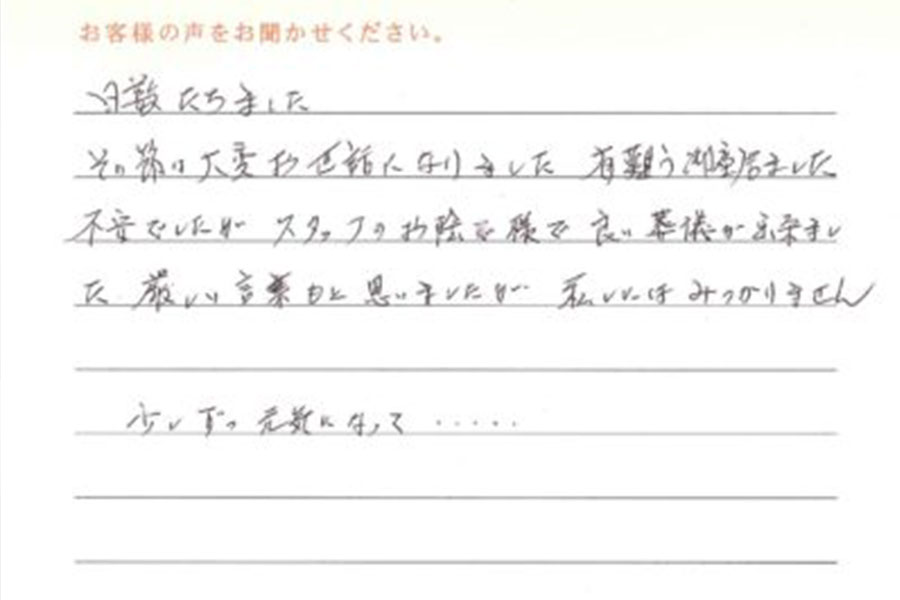 お客様の声をお聞かせください。
日数たちました
その節は大変お世話になりました 有難う御座居ました
不安でしたが スタッフのお陰で様で 良い葬儀が出来まし
た 厳しい言葉もと思いましたが 私しにはみつかりません
少しずつ元気になって・・・・・